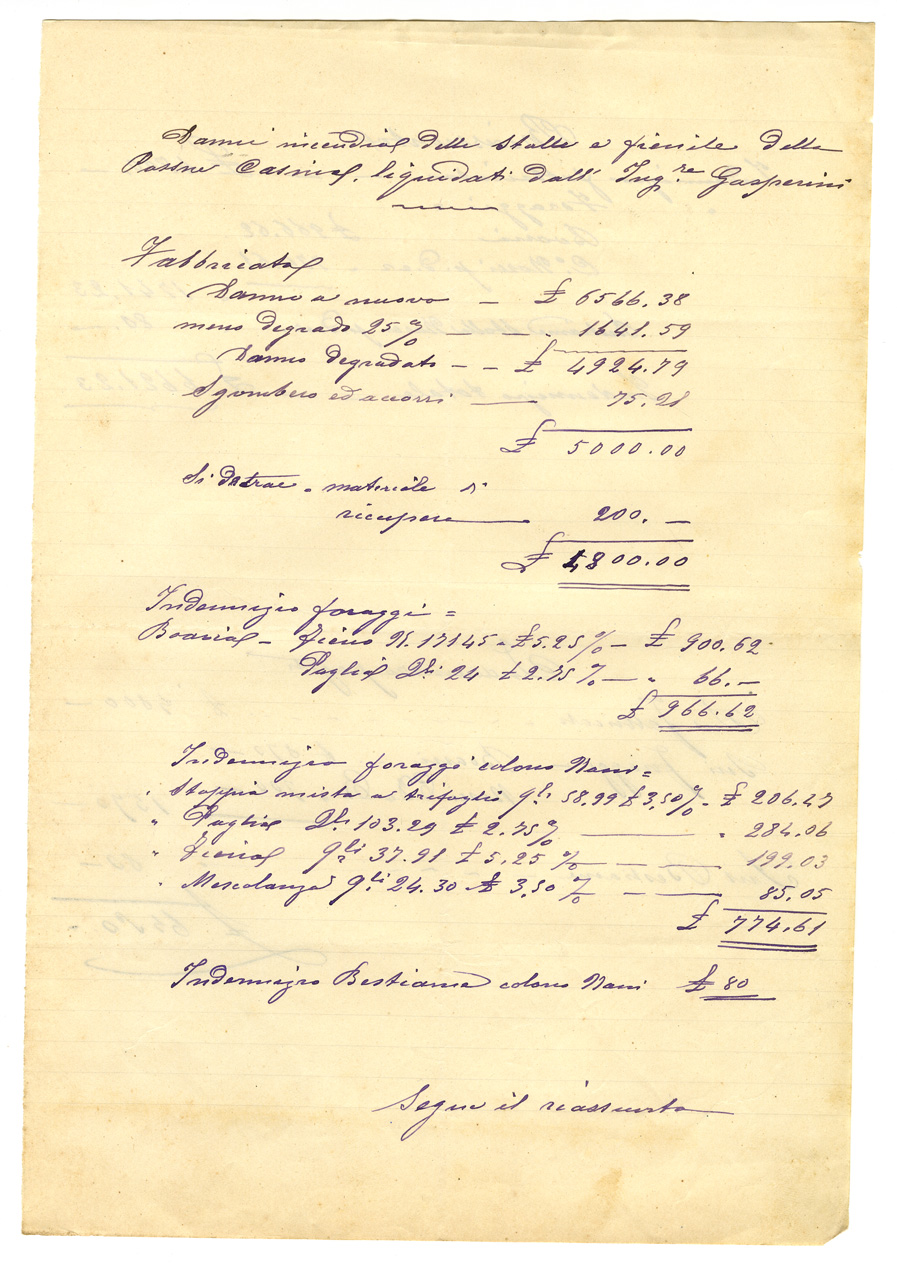 Danni incendio delle stalle e fienile della
Possne Casina, liquidati dall' Ing.re Gasperini
Fabbricato
Danno a nuovo — £ 6566.38
meno degrado 25% — — . 1641.59
Danno degradato — — £ 4924.79
Sgombero ed accorri — 75.21
£ 5000.00
Si detrae . materiale di
ricupero — 200. —
£ 4800.00
Indennizzo foraggi =
Boaria — Fieno N. 17145 . £ 5.25 % — £ 900.62
Paglia Qli 24 £ 2.75 % — " 66. —
£ 966.62
Indennizzo foraggi colono Nani =
" Stoppia mista a trifoglio Qli 58.99 £ 3,50 % . £ 206.47
" Paglia Qli 103.29 £ 2.75 % — " 284.06
" Fieno Qli 37.91 £ 5,25 % — — 199.03
" Mescolanza Qli 24.30 £ 3,50 % — — 85.05
£ 774.61
Indennizzo Bestiame colono Nani £ 80
Segue il riassunto